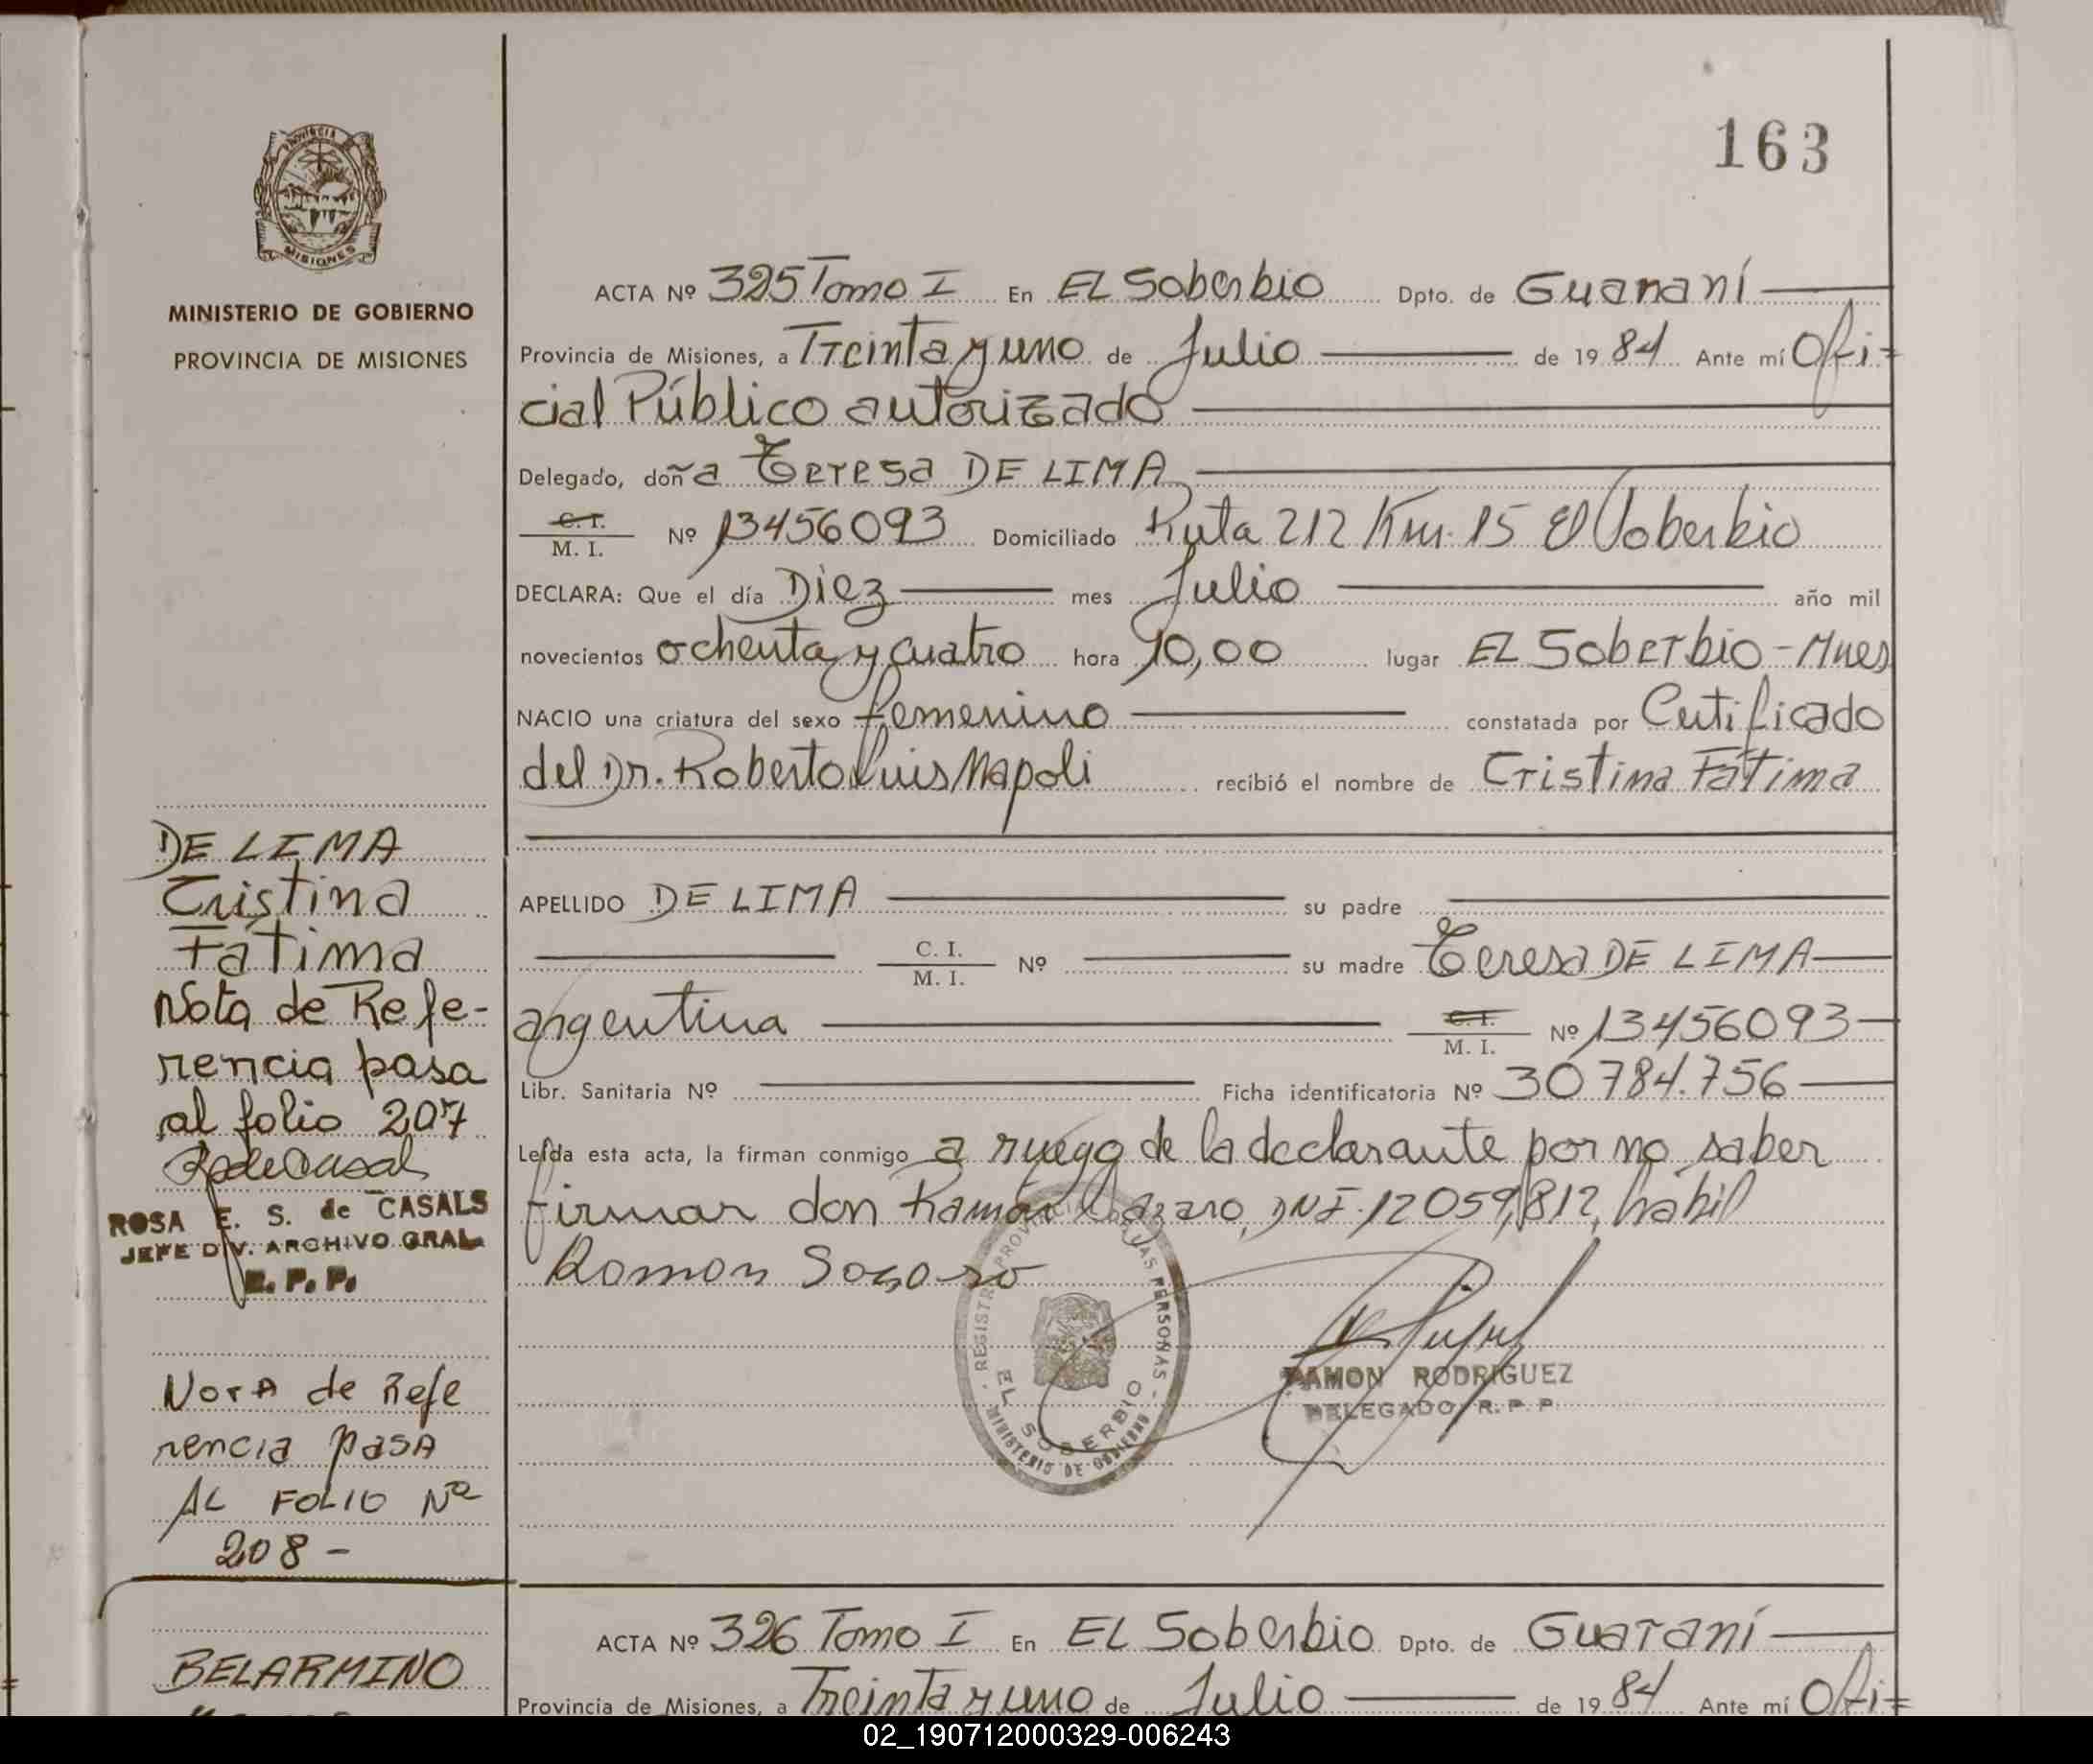 163
PROVINCIA
MISIONES
MINISTERIO DE GOBIERNO
PROVINCIA DE MISIONES
ACTA Nº 325 Tomo I En EL Soberbio Dpto. de Guaraní
Provincia de Misiones, a Treinta y uno de Julio de 1984 Ante mí Ofi=
cial Público autorizado
Delegado, doña Teresa DE LIMA
C. I.
M. I. Nº 13456093 Domiciliado Ruta 212 Km. 15 El Soberbio
DECLARA: Que el día Diez mes Julio año mil
novecientos ochenta y cuatro hora 10,00 lugar EL Soberbio - Mnes
NACIO una criatura del sexo femenino constatada por Certificado
del Dr. Roberto Luis Napoli recibió el nombre de Cristina Fátima
APELLIDO DE LIMA su padre
C. I.
M. I. Nº su madre Teresa DE LIMA
argentina C. I.
M. I. Nº 13456093
Libr. Sanitaria Nº Ficha identificatoria Nº 30784.756
Leída esta acta, la firman conmigo a ruego de la declarante por no saber
firmar don Ramón Lazaro, DNI. 12059,812, hábil
REGISTRO PROVINCIAL DE LAS PERSONAS
EL SOBERBIO
MINISTERIO DE GOBIERNO
RAMON RODRIGUEZ
DELEGADO R. P. P.
DE LIMA
Cristina
Fátima
Nota de Refe-
rencia pasa
al folio 207
ROSA E. S. de CASALS
JEFE DIV. ARCHIVO GRAL.
R. P. P.
Nota de Refe
rencia pasa
AL FOLIO Nº
208 -
ACTA Nº 326 Tomo I En EL Soberbio Dpto. de Guaraní
BELARMINO
Provincia de Misiones, a Treinta y uno de Julio de 1984 Ante mí Ofi=
02_190712000329-006243